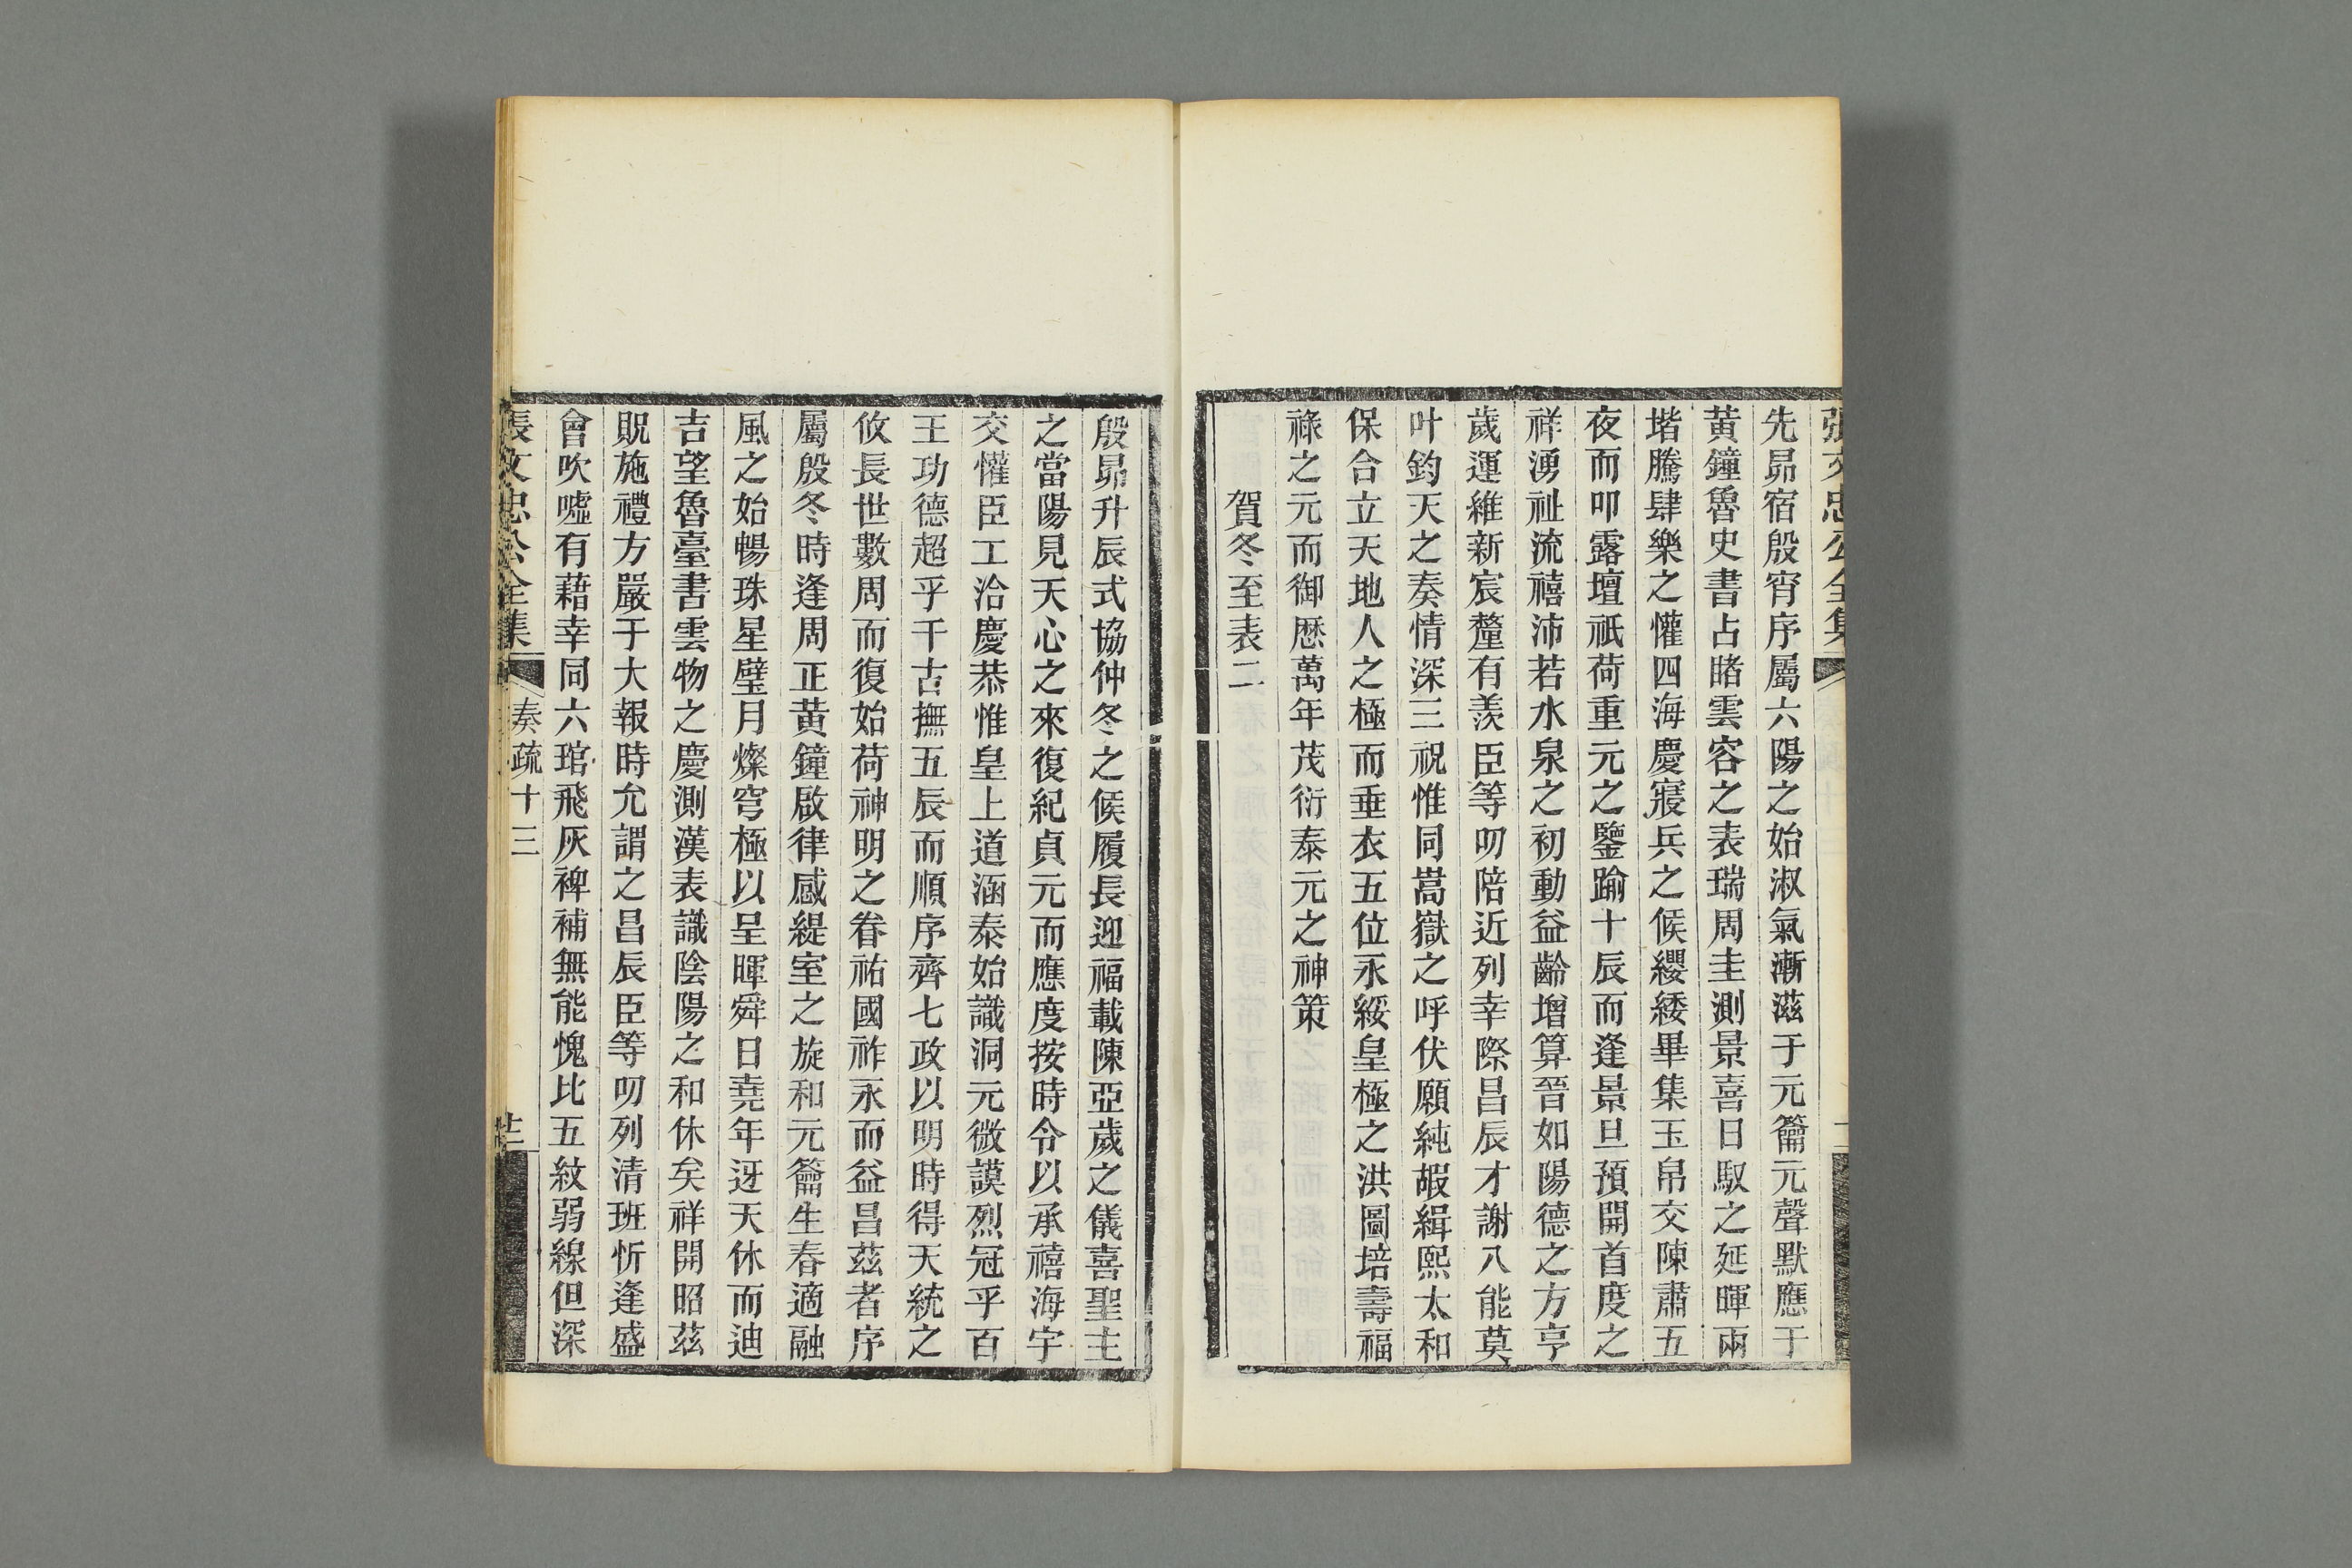 張文忠公全集
先昴宿殷宵序屬六陽之始淑氣漸滋于元籥元聲默應于
黃鐘魯史書占睹雲容之表瑞周圭測景喜日馭之延暉兩
堦騰肆樂之懽四海慶寢兵之候纓緌畢集玉帛交陳肅五
夜而叩露壇祇荷重元之鑒踰十辰而逢景旦預開首度之
祥湧祉流禧沛若水泉之初動益齡增算晉如陽德之方亨
歲運維新宸釐有羨臣等叨陪近列幸際昌辰才謝八能莫
叶鈞天之奏情深三祝惟同嵩嶽之呼伏願純嘏緝熙太和
保合立天地人之極而垂衣五位永綏皇極之洪圖培壽福
祿之元而御厯萬年茂衍泰元之神策
賀冬至表二
殷昴升辰式協仲冬之候履長迎福載陳亞歲之儀喜聖主
之當陽見天心之來復紀貞元而應度按時令以承禧海宇
交懽臣工洽慶恭惟皇上道涵泰始識洞元微謨烈冠乎百
王功德超乎千古撫五辰而順序齊七政以明時得天統之
攸長世數周而復始荷神明之眷祐國祚永而益昌茲者序
屬殷冬時逢周正黃鐘啟律感緹室之旋和元籥生春適融
風之始暢珠星璧月燦穹極以呈暉舜日堯年迓天休而迪
吉望魯臺書雲物之慶測漢表識陰陽之和休矣祥開昭茲
貺施禮方嚴于大報時允謂之昌辰臣等叨列清班忻逢盛
會吹噓有藉幸同六琯飛灰裨補無能愧比五紋弱線但深
張文忠公全集 奏疏十三